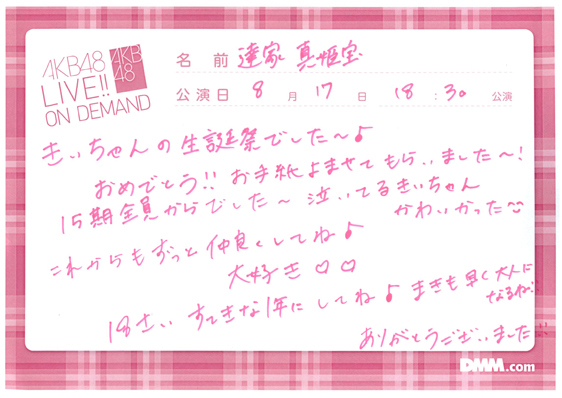 AKB48
LIVE!!
ON DEMAND
AKB
48
名前 達家 真姫宝
公演日 8月17日 18:30 公演
きぃちゃんの生誕祭でした〜♪
おめでとう!! お手紙よませてもらぃました〜!
15期全員からでした〜 泣ぃてるきぃちゃん
かわぃかった^^
これからもずっと仲良くしてね♪
大好き♡♡
18さぃ すてきな1年にしてね♪ まきも早く大人に
なるね!!
ありがとうござぃました!!
DMM.com